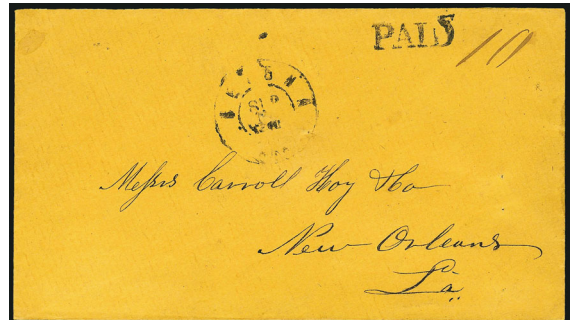 PAID 10
Messrs Carroll Hoy & Co
New Orleans
La